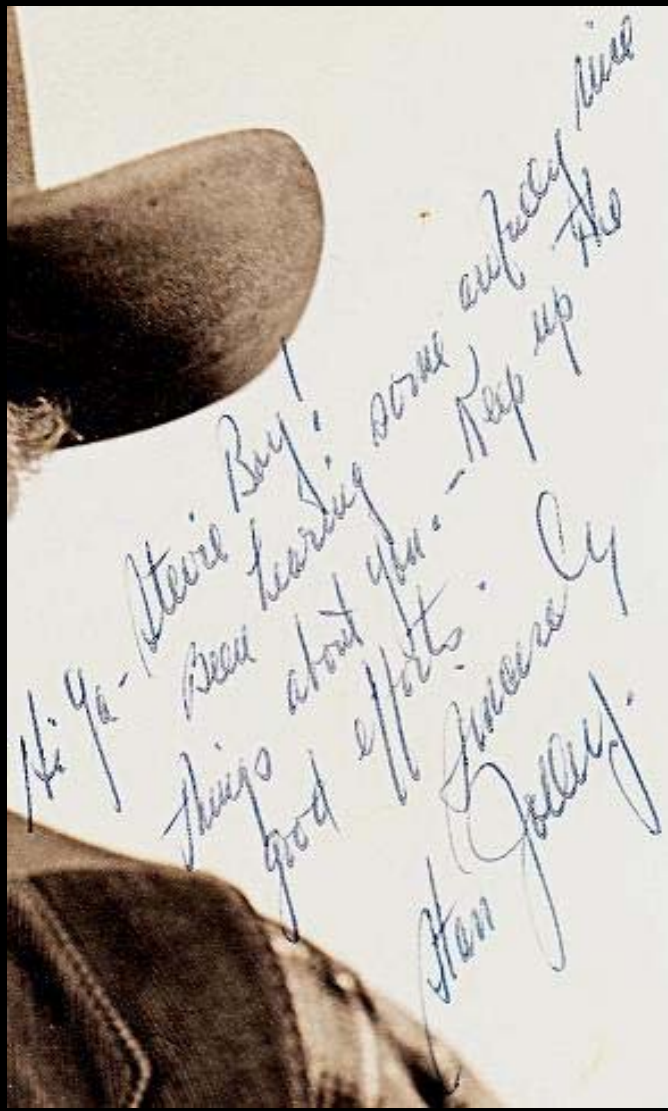 Hi Ya - Stevie Boy!
Been hearing some awfully nice
things about you. - Keep up the
good efforts.
Sincerely
Stan Jolley.